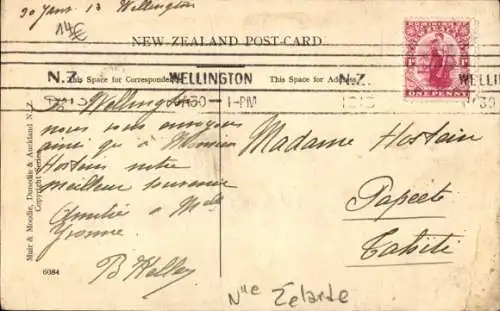 30 Janv 13 Wellington
14€
NEW-ZEALAND POST-CARD
N.Z. WELLINGTON N.Z. WELLINGTON
This Space for Correspondence
This Space for Address
ONE PENNY
30 - 1-PM
De Wellington
nous vous envoyons
ainsi qu'à Monsieur
Hostein notre
meilleur souvenir
Amitié à Mlle
Yvonne
Madame Hostein
Papeete
Tahiti
Muir & Moodie, Dunedin & Auckland N.Z.
Copyright Series
6084
Nlle Zélande